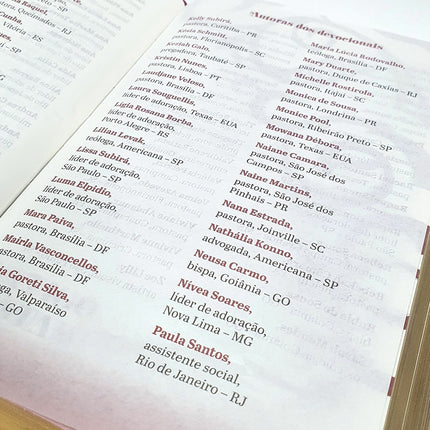 Raquel,
Cunha,
Vitória – ES
RJ
SP
Autoras dos devocionais
Kelly Subirá,
pastora, Curitiba – PR
Kesia Schmitt,
pastora, Florianópolis – SC
Keziah Galo,
pregadora, Taubaté – SP
Kristin Nunes,
pastora, Lisboa – PT
Laudjane Veloso,
pastora, Brasília – DF
Laura Souguellis,
líder de adoração, Texas – EUA
Lígia Rosana Borba,
líder de adoração,
Porto Alegre – RS
Lilian Levak,
Americana – SP
Lissa Subirá,
líder de adoração,
São Paulo – SP
Luma Elpidio,
líder de adoração,
São Paulo – SP
Mara Paiva,
pastora, Brasília – DF
Mairla Vasconcellos,
pastora, Brasília – DF
Goreti Silva,
Valparaíso
GO
Maria Lúcia Rodovalho,
teóloga, Brasília – DF
Mary Duarte,
pastora, Duque de Caxias – RJ
Michelle Rostirola,
pastora, Itajaí – SC
Monica de Sousa,
pastora, Londrina – PR
Monice Pool,
pastora, Ribeirão Preto – SP
Mowana Débora,
pastora, Texas – EUA
Naiane Camara,
pastora, São José dos
Campos – SP
Naíne Martins,
pastora, São José dos
Pinhais – PR
Nana Estrada,
pastora, Joinville – SC
Nathália Konno,
advogada, Americana – SP
Neusa Carmo,
bispa, Goiânia – GO
Nívea Soares,
líder de adoração,
Nova Lima – MG
Paula Santos,
assistente social,
Rio de Janeiro – RJ